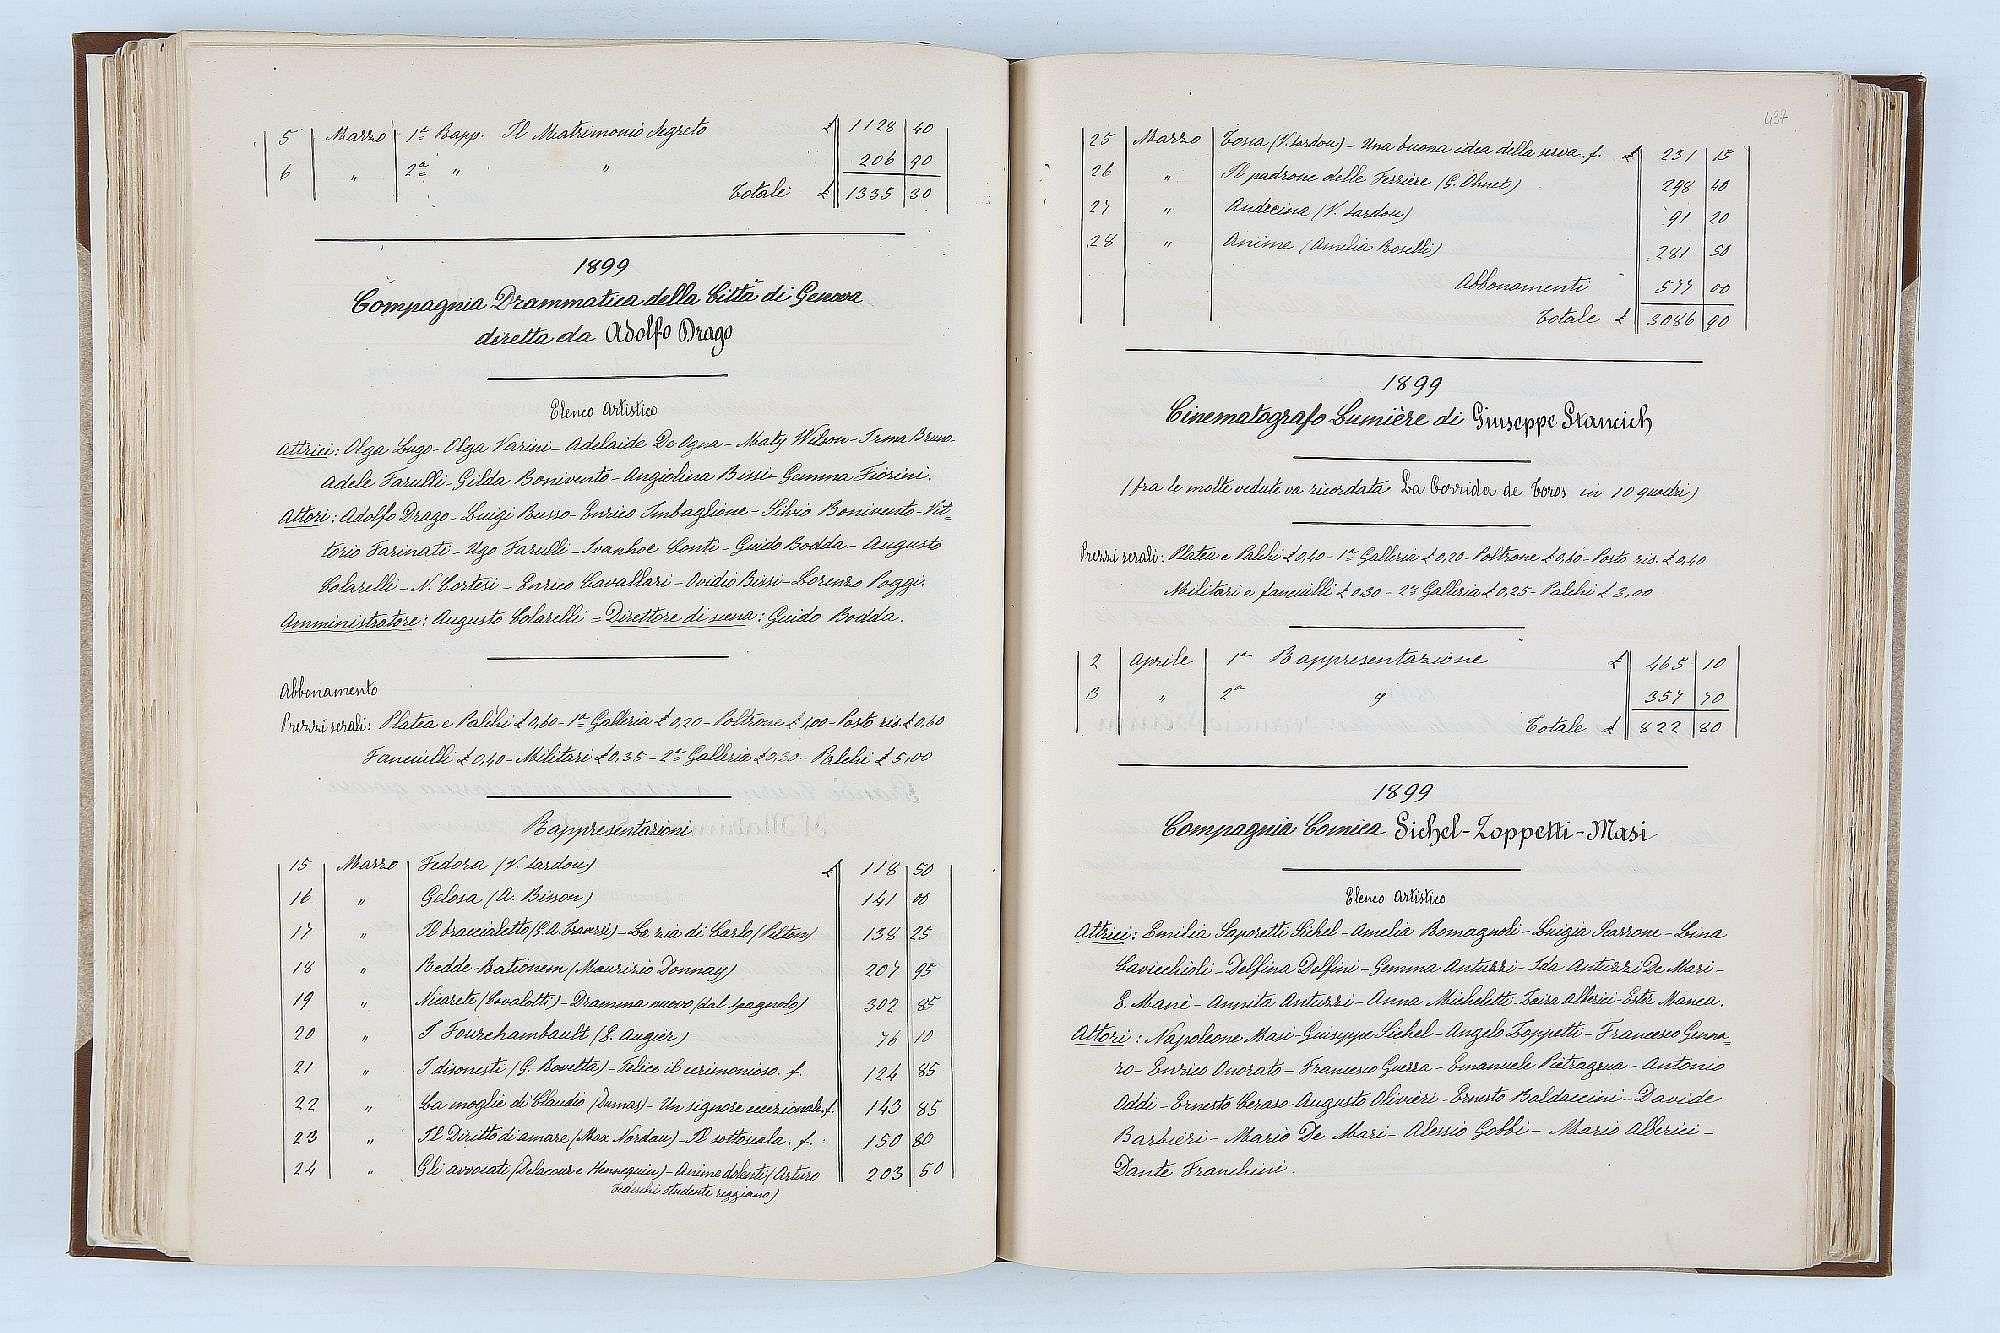 5 Marzo 1a Rapp. Il Matrimonio Segreto £ 1128 40
6 " 2a " " 206 90
Totale £ 1335 30
1899
Compagnia Drammatica della Città di Genova
diretta da Adolfo Drago
Elenco Artistico
Attrici: Olga Lugo - Olga Varini - Adelaide De Ogna - Maty Wilson - Irma Bruno -
Adele Farulli - Gilda Bonivento - Angiolina Bissi - Gemma Fiorini.
Attori: Adolfo Drago - Luigi Russo - Enrico Imbaglione - Silvio Bonivento - Vit=
torio Farinati - Ugo Farulli - Ivanhoe Conti - Guido Bodda - Augusto
Colarelli - N. Cortesi - Enrico Cavallari - Ovidio Bissi - Lorenzo Poggi.
Amministratore: Augusto Colarelli = Direttore di scena: Guido Bodda.
Abbonamento
Prezzi serali: Platea e Palchi £ 0,60 - 1a Galleria £ 0,20 - Poltrone £ 1,00 - Posto ris. £ 0,60
Fanciulli £ 0,40 - Militari £ 0,35 - 2a Galleria £ 0,30 - Palchi £ 5,00
Rappresentazioni
15 Marzo Fedora (V. Sardou) £ 118 50
16 " Gelosa (A. Bisson) 141 00
17 " Il braccialetto (G. A. Traversi) - La zia di Carlo (Pilton) 138 25
18 " Redde Rationem (Maurizio Donnay) 207 95
19 " Nicarete (Cavalotti) - Dramma nuovo (dal spagnolo) 302 85
20 " I Fourchambault (E. Augier) 76 10
21 " I disonesti (G. Rovetta) - Felice il cerimonioso. f. 124 85
22 " La moglie di Claudio (Dumas) - Un signore eccezionale. f. 143 85
23 " Il Diritto di amare (Max Nordau) - Il sottoscala. f. 150 80
24 " Gli avvocati (Delacour e Hennequin) - Anime dolenti (Arturo 203 50
Tedeschi studente reggiano)
437
25 Marzo Tosca (V. Sardou) - Una buona idea della serva. f. £ 231 15
26 " Il padrone delle Ferriere (G. Ohnet) 298 40
27 " Andreina (V. Sardou) 91 20
28 " Anime (Amelia Rosselli) 281 50
Abbonamenti 577 00
Totale £ 3086 90
1899
Cinematografo Lumière di Giuseppe Stancich
(fra le molte vedute va ricordata La Corrida de Toros in 10 quadri)
Prezzi serali: Platea e Palchi £ 0,40 - 1a Galleria £ 0,20 - Poltrone £ 0,60 - Posto ris. £ 0,40
Militari e fanciulli £ 0,30 - 2a Galleria £ 0,25 - Palchi £ 3,00
2 Aprile 1a Rappresentazione £ 465 10
3 " 2a " 357 70
Totale £ 822 80
1899
Compagnia Comica Sichel-Zoppetti-Masi
Elenco Artistico
Attrici: Emilia Saporetti Sichel - Amelia Romagnoli - Luigia Scarrone - Lena
Cavicchioli - Delfina Delfini - Gemma Antuzzi - Ida Antuzzi De Mari -
E. Manè - Annita Antuzzi - Anna Micheletti - Zaira Alberici - Ester Manca.
Attori: Napoleone Masi - Guiseppe Sichel - Angelo Zoppetti - Francesco Genna=
ro - Enrico Onorato - Francesco Guerra - Emanuele Pietragua - Antonio
Addi - Ernesto Ceraso - Augusto Olivieri - Ernesto Baldaccini - Davide
Barbieri - Mario De Mari - Alessio Gobbi - Mario Alberici -
Dante Franchini.